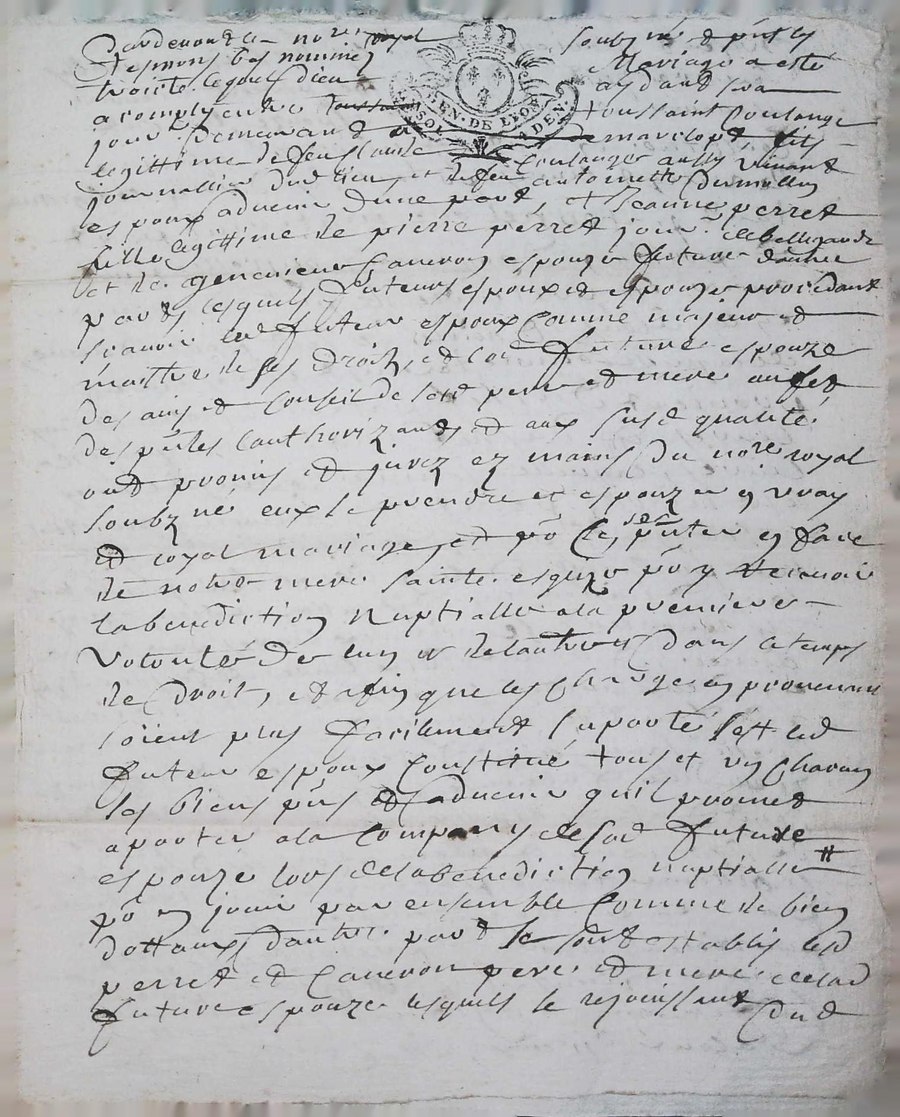 Pardevant le notre royal soubz né & pnts les
tesmoins bas nommez Mariage a esté
traicté lequel Dieu aydant sera
acomply entre toussaint Coulange
GEN. DE LYON
SOL
DEN.
jour demeurant a marclopt, fils
legittime de feu Coulange aussy vivant
journallier dud lieu, et de feue antoinette Dumollin
espoux advenir dune part, & Jeanne perret
fille legittime de pierre perret jour de bellegarde
et de genevieve Caveron espouze future dautre
part, lesquels futurs espoux et espouze procedant
scavoir led futur espoux comme majeur et
maitre de ses droits, et lad future espouze
des avis et conseil de sesd pere et mere au fet
des pntes lauthorizants et aux susd qualités
ont promis et jurez ez mains du nore royal
soubzné eux se prendre et espouzer en vray
et loyal mariage, et po ce se pnter en face
de notre mere sainte esglize po y recevoir
la benediction nuptialle a la premiere
volonté de lun ou de lautre dans le temps
de droit, et afin que les charges en provenant
soient plus facilement suporté sest led
futur espoux constitué tous et un chacun
ses biens pnts et advenir quil promet
aporter a la Compagny de sad future
espouze lors de la benediction nuptialle #
po en jouir par ensemble comme de bien
dottaux, dautre part se sont establis lesd
perret et Caveron pere et mere de lad
future espouze lesquels se rejouissant dud